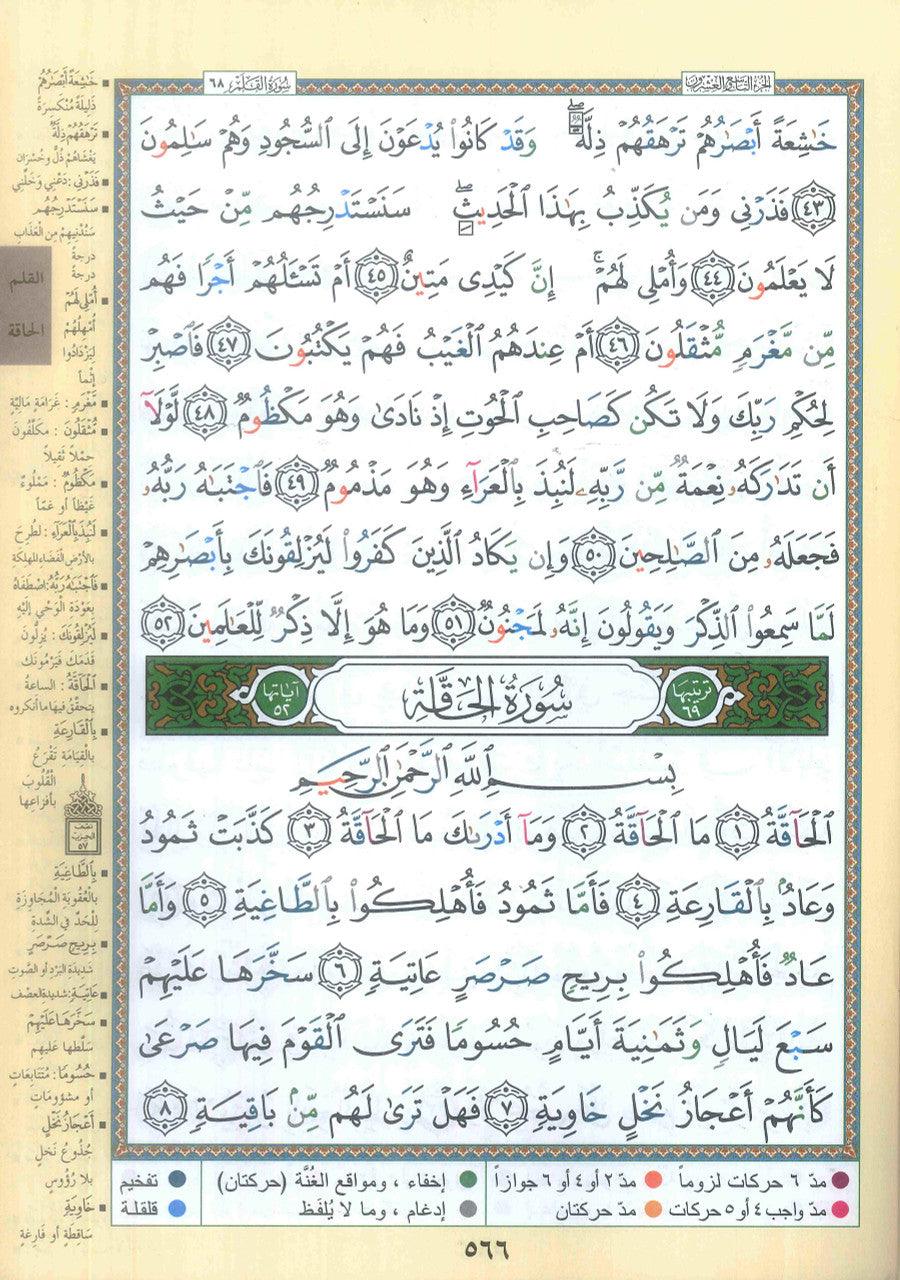 سُورَةُ القَلَمِ ٦٨
الجزء التاسع والعشرون
خَٰشِعَةً أَبْصَٰرُهُمْ تَرْهَقُهُمْ ذِلَّةٌ ۖ وَقَدْ كَانُوا۟ يُدْعَوْنَ إِلَى ٱلسُّجُودِ وَهُمْ سَٰلِمُونَ
٤٣ فَذَرْنِى وَمَن يُكَذِّبُ بِهَٰذَا ٱلْحَدِيثِ ۖ سَنَسْتَدْرِجُهُم مِّنْ حَيْثُ
لَا يَعْلَمُونَ ٤٤ وَأُمْلِى لَهُمْ ۚ إِنَّ كَيْدِى مَتِينٌ ٤٥ أَمْ تَسْـَٔلُهُمْ أَجْرًا فَهُم
مِّن مَّغْرَمٍ مُّثْقَلُونَ ٤٦ أَمْ عِندَهُمُ ٱلْغَيْبُ فَهُمْ يَكْتُبُونَ ٤٧ فَٱصْبِرْ
لِحُكْمِ رَبِّكَ وَلَا تَكُن كَصَاحِبِ ٱلْحُوتِ إِذْ نَادَىٰ وَهُوَ مَكْظُومٌ ٤٨ لَّوْلَآ
أَن تَدَٰرَكَهُۥ نِعْمَةٌ مِّن رَّبِّهِۦ لَنُبِذَ بِٱلْعَرَآءِ وَهُوَ مَذْمُومٌ ٤٩ فَٱجْتَبَٰهُ رَبُّهُۥ
فَجَعَلَهُۥ مِنَ ٱلصَّٰلِحِينَ ٥٠ وَإِن يَكَادُ ٱلَّذِينَ كَفَرُوا۟ لَيُزْلِقُونَكَ بِأَبْصَٰرِهِمْ
لَمَّا سَمِعُوا۟ ٱلذِّكْرَ وَيَقُولُونَ إِنَّهُۥ لَمَجْنُونٌ ٥١ وَمَا هُوَ إِلَّا ذِكْرٌ لِّلْعَٰلَمِينَ ٥٢
ترتيبها ٦٩ سُورَةُ الحَاقَّةِ آياتها ٥٢
بِسْمِ ٱللَّهِ ٱلرَّحْمَٰنِ ٱلرَّحِيمِ
ٱلْحَآقَّةُ ١ مَا ٱلْحَآقَّةُ ٢ وَمَآ أَدْرَىٰكَ مَا ٱلْحَآقَّةُ ٣ كَذَّبَتْ ثَمُودُ
وَعَادٌۢ بِٱلْقَارِعَةِ ٤ فَأَمَّا ثَمُودُ فَأُهْلِكُوا۟ بِٱلطَّاغِيَةِ ٥ وَأَمَّا
عَادٌ فَأُهْلِكُوا۟ بِرِيحٍ صَرْصَرٍ عَاتِيَةٍ ٦ سَخَّرَهَا عَلَيْهِمْ
سَبْعَ لَيَالٍ وَثَمَٰنِيَةَ أَيَّامٍ حُسُومًا فَتَرَى ٱلْقَوْمَ فِيهَا صَرْعَىٰ
كَأَنَّهُمْ أَعْجَازُ نَخْلٍ خَاوِيَةٍ ٧ فَهَلْ تَرَىٰ لَهُم مِّنۢ بَاقِيَةٍ ٨
خَٰشِعَةً أَبْصَٰرُهُمْ
ذَلِيلَةً مُنْكَسِرَةً
تَرْهَقُهُمْ ذِلَّةٌ
يَغْشَاهُمْ ذُلٌّ وخُسْرَان
فَذَرْنِي : دَعْنِي وخَلِّنِي
سَنَسْتَدْرِجُهُم
سَنُدْنِيهِمْ مِنَ العَذَاب
درجةً
درجةً
أُمْلِي لَهُمْ
أُمْهِلُهُمْ
لِيَزْدَادُوا
إثماً
مَّغْرَمٍ : غَرَامَةٍ مَالِيَّةٍ
مُّثْقَلُونَ : مكلَّفُونَ
حِمْلاً ثَقِيلاً
مَكْظُومٌ : مَمْلُوءٌ
غَيْظاً أو غمّاً
لَنُبِذَ بِالْعَرَاءِ : لَطُرِحَ
بالأرْضِ الفَضَاء المهلكة
فَاجْتَبَٰهُ رَبُّهُ : اصْطَفَاهُ
بِعَوْدَةِ الوَحْيِ إليْهِ
لَيُزْلِقُونَكَ : يُزِلُّونَ
قَدَمَكَ فَيَرْمُونَك
الْحَاقَّةُ : الساعةُ
يتحقَّقُ فيها ما أنكروه
بِالْقَارِعَةِ
بالْقِيَامَةِ تَقْرَعُ
القُلُوبَ
بأفزاعِها
نصف
الحزب
٥٧
بِالطَّاغِيَةِ
بالعُقُوبَةِ المُجَاوِزَةِ
لِلْحَدِّ في الشِّدة
بِرِيحٍ صَرْصَرٍ
شديدةِ البَرْدِ أو الصَّوتِ
عَاتِيَةٍ : شديدةِ العصْف
سَخَّرَهَا عَلَيْهِمْ
سَلَّطها عليهم
حُسُومًا : مُتَتَابِعَاتٍ
أو مشؤومَاتٍ
أَعْجَازُ نَخْلٍ
جُذُوعُ نَخلٍ
بلا رُؤُوسٍ
خَاوِيَةٍ
سَاقِطَةٍ أو فَارِغَةٍ
القلم
الحاقة
مدّ ٦ حركات لزوماً مدّ ٢ أو ٤ أو ٦ جوازاً إخفاء ، ومواقع الغُنَّة (حركتان) تفخيم
مدّ واجب ٤ أو ٥ حركات مدّ حركتان إدغام ، وما لا يُلفَظ قلقلة
٥٦٦